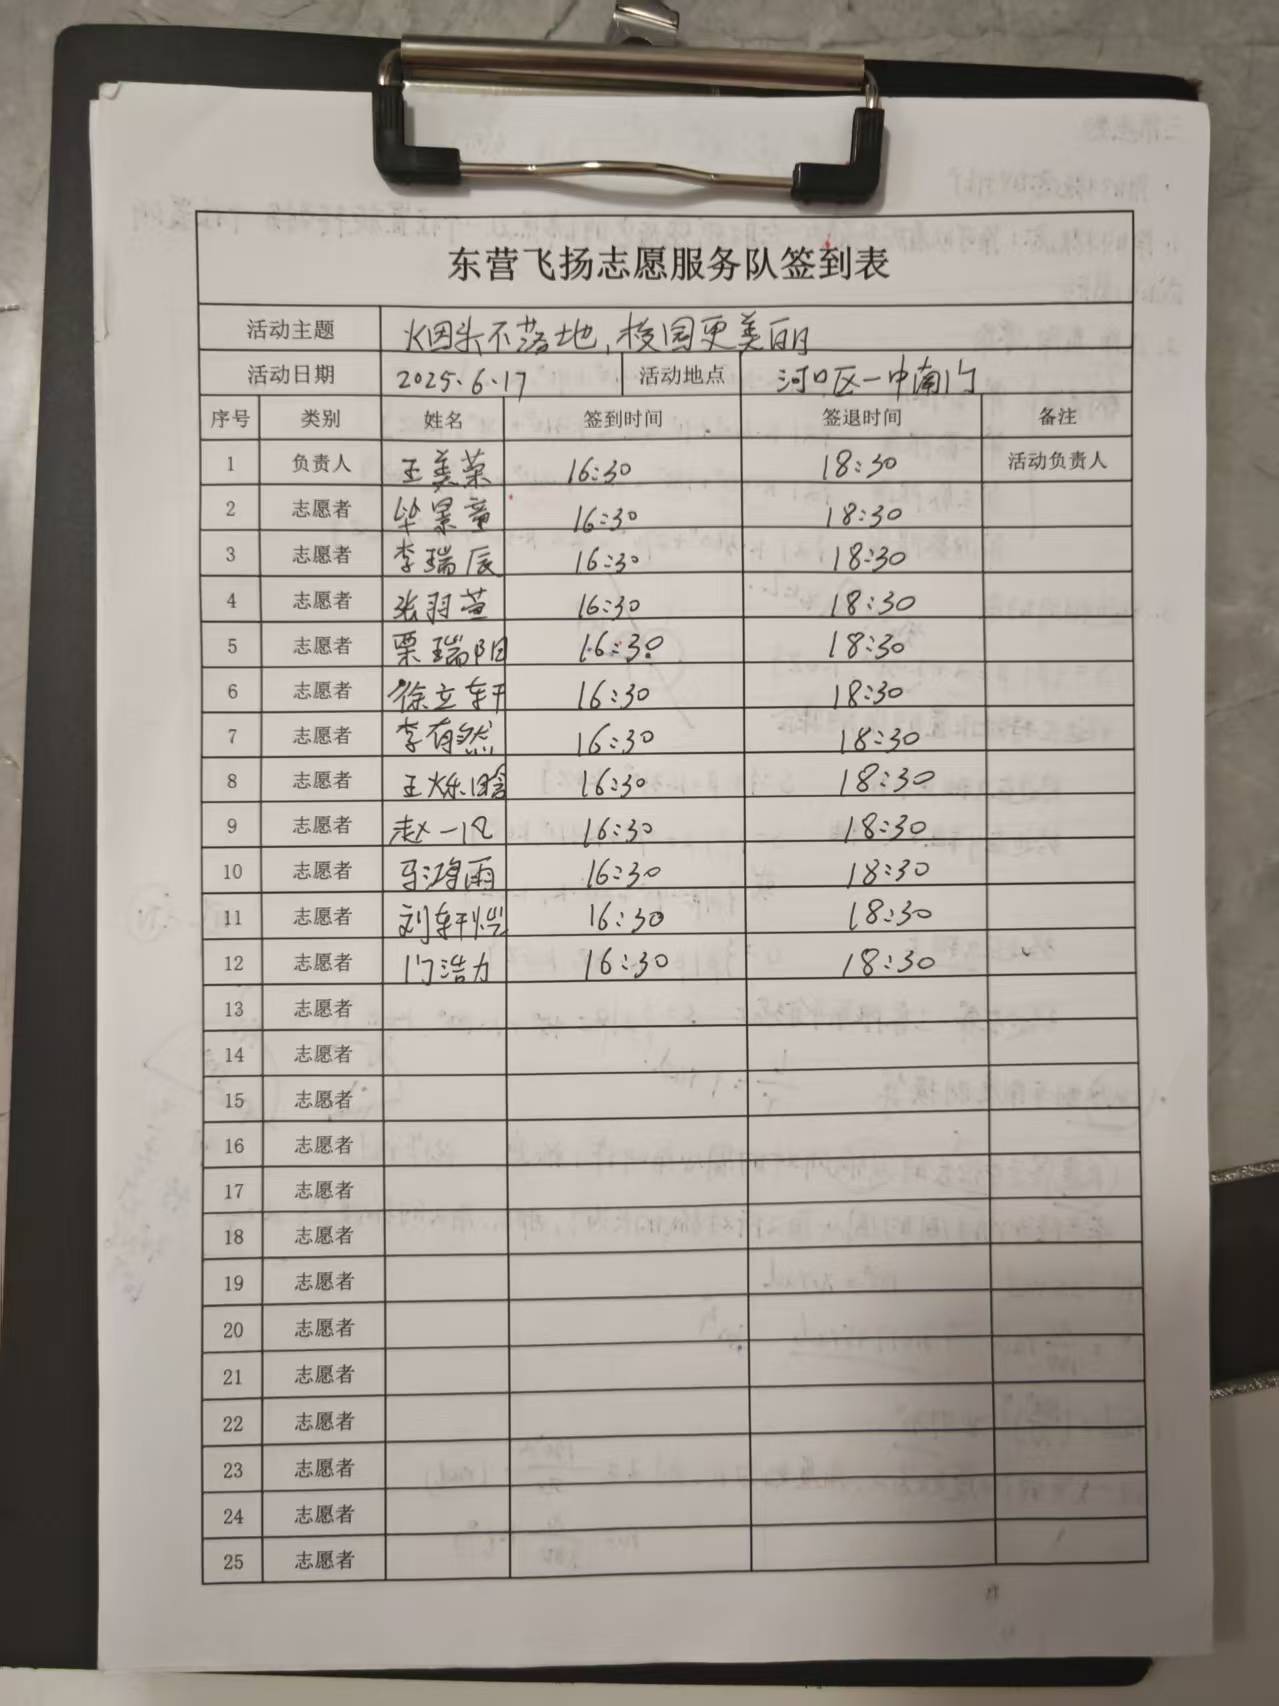 东营飞扬志愿服务队签到表
活动主题 烟头不落地,校园更美丽
活动日期 2025.6.17 活动地点 河口区一中南门
序号 类别 姓名 签到时间 签退时间 备注
1 负责人 王美荣 16:30 18:30 活动负责人
2 志愿者 毕景童 16:30 18:30
3 志愿者 李瑞辰 16:30 18:30
4 志愿者 张羽萱 16:30 18:30
5 志愿者 栗瑞阳 16:30 18:30
6 志愿者 徐立轩 16:30 18:30
7 志愿者 李有然 16:30 18:30
8 志愿者 王烁晗 16:30 18:30
9 志愿者 赵一凡 16:30 18:30
10 志愿者 马鸿雨 16:30 18:30
11 志愿者 刘轩恺 16:30 18:30
12 志愿者 门浩力 16:30 18:30
13 志愿者
14 志愿者
15 志愿者
16 志愿者
17 志愿者
18 志愿者
19 志愿者
20 志愿者
21 志愿者
22 志愿者
23 志愿者
24 志愿者
25 志愿者